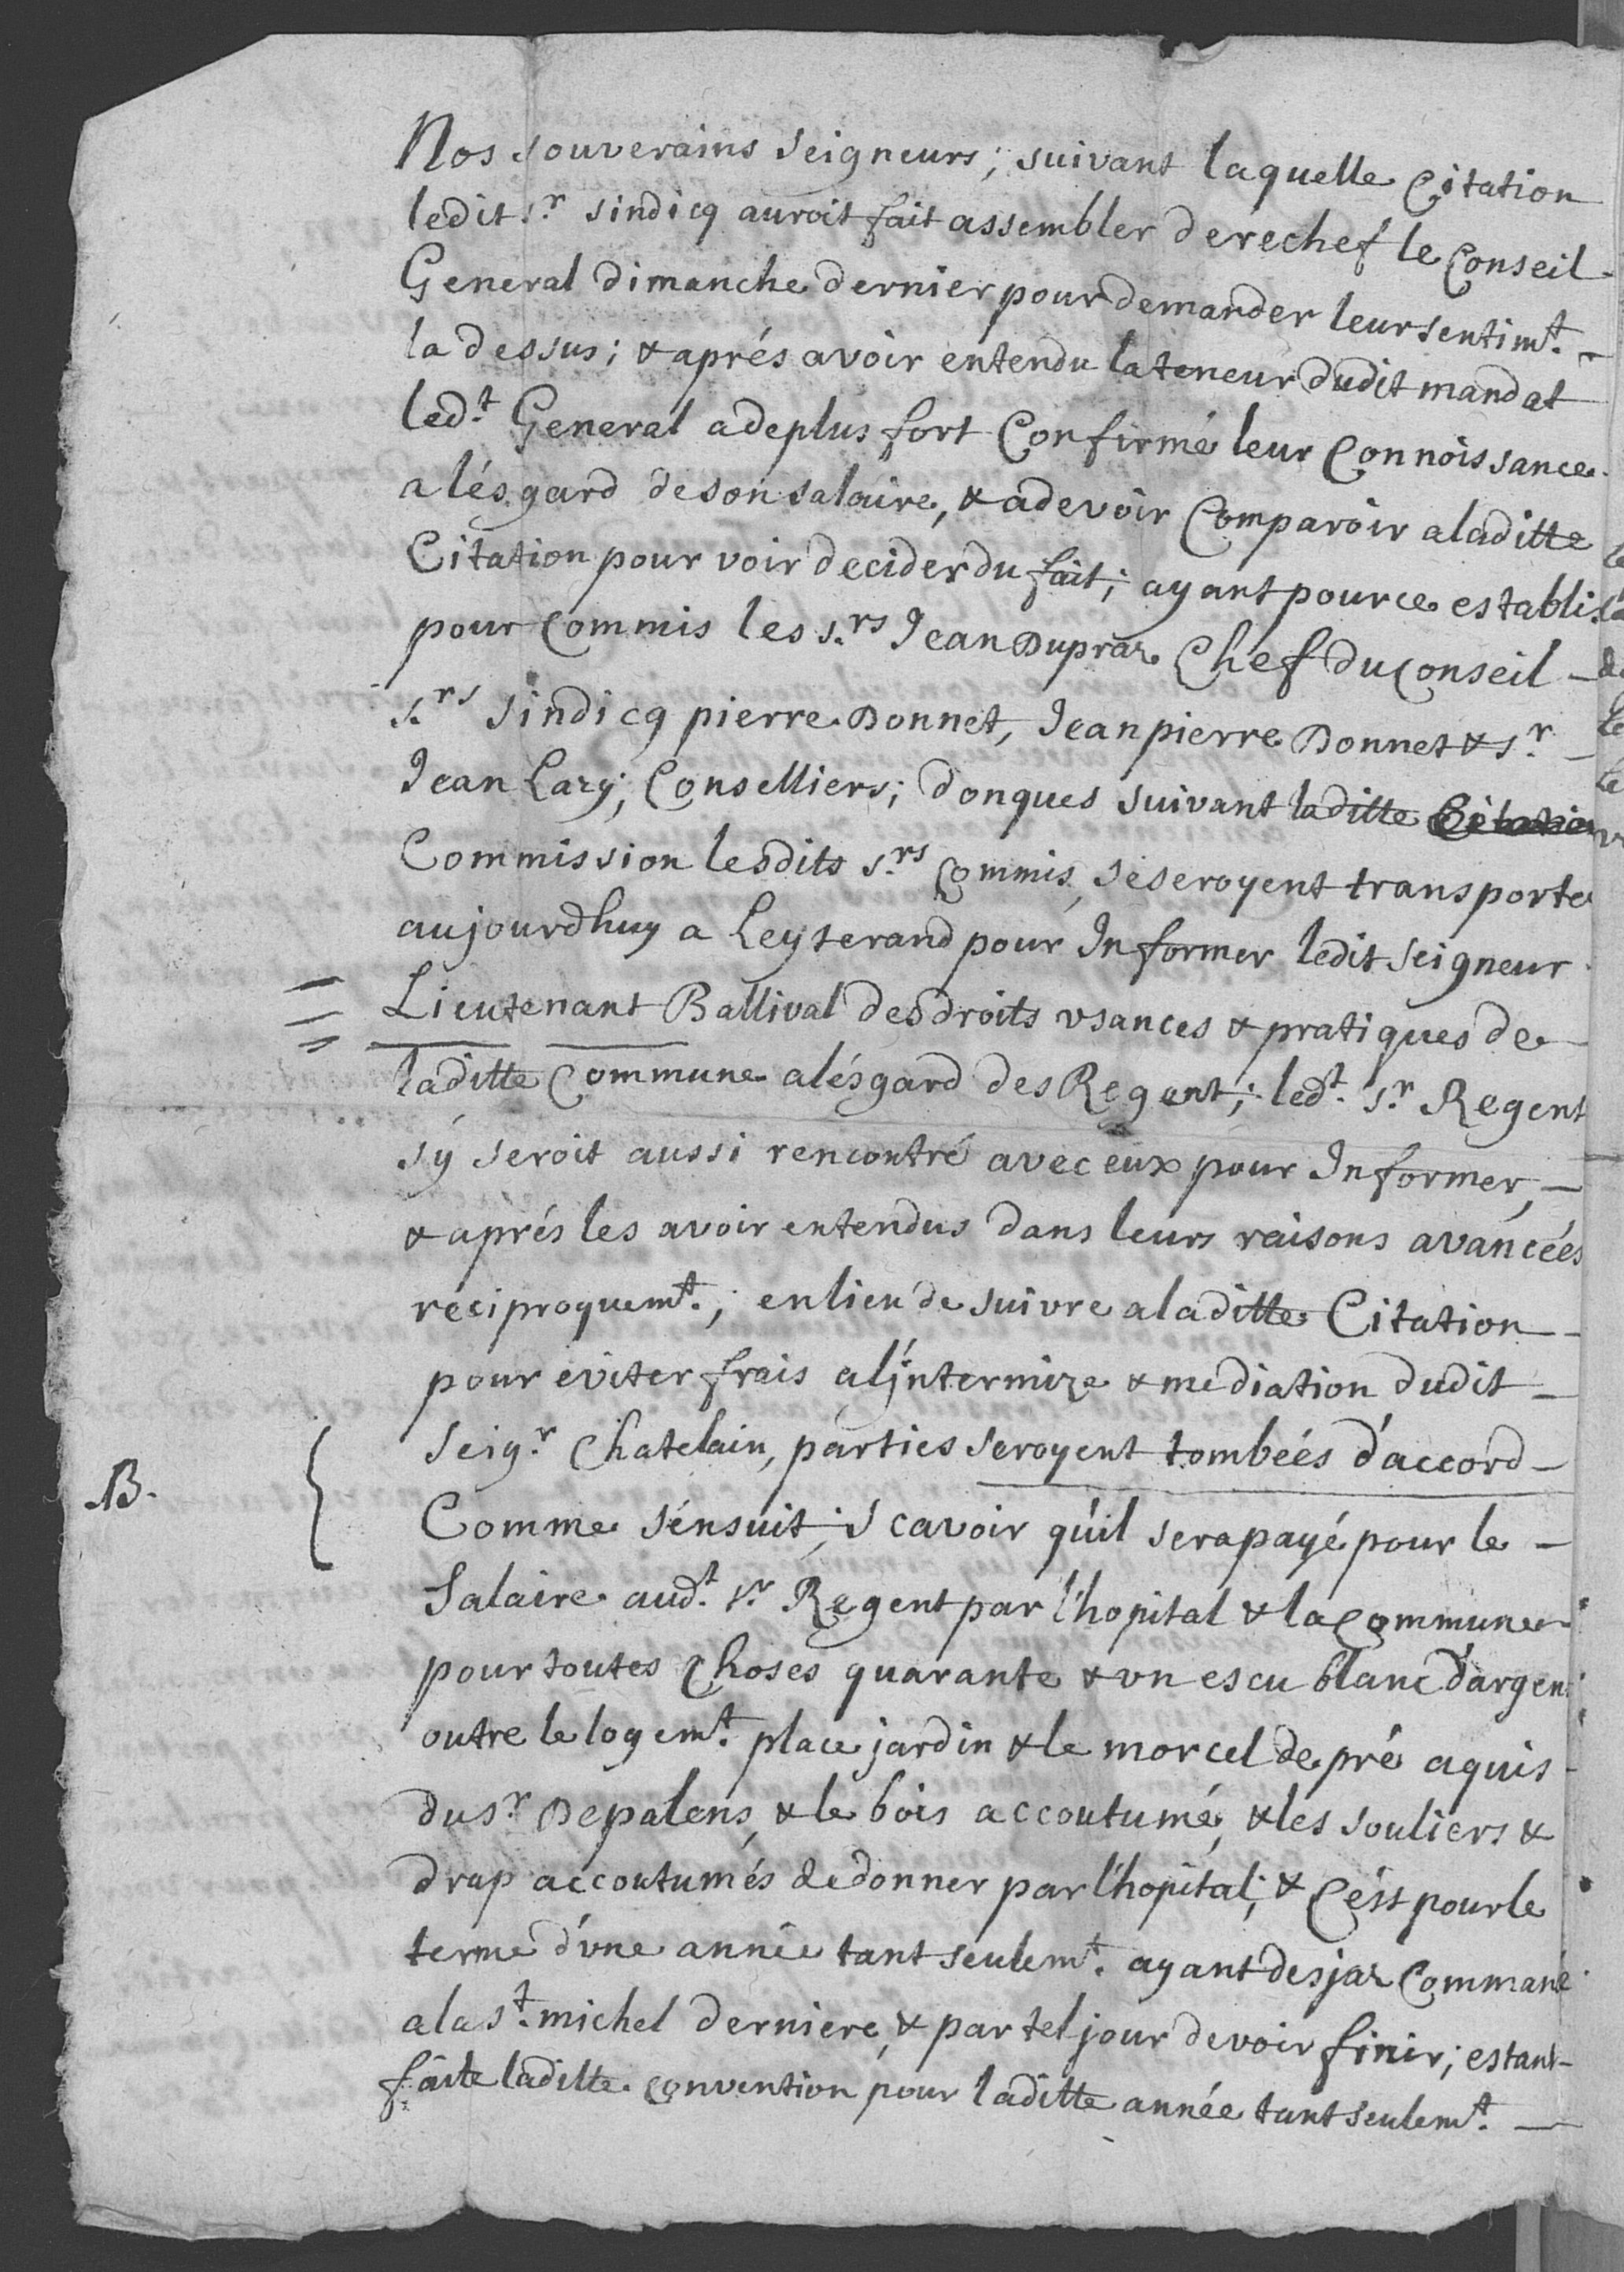 Nos souverains Seigneurs; suivant laquelle Citation
ledit s.r sindicq auroit fait assembler derechef le Conseil
General dimanche dernier pour demander leur sentim.t
la dessus; & aprés avoir entendu la teneur dudit mandat
led.t General a de plus fort Confirmé leur Connoissance
a lésgard de son salaire, & a devoir Comparoir a laditte
Citation pour voir decider du fait; ayant pour ce establi
pour Commis les s.rs Jean Dupraz Chef du Conseil
s.rs sindicq pierre Donnet, Jean pierre Donnet & s.r
Jean Lary, Conselliers; donques suivant laditte Citation
Commission lesdits s.rs Commis se seroyent transporte
aujourdhuy a Leyserand pour Informer ledit seigneur
Lieutenant Ballival des droits vsances & pratiques de
laditte Commune a lésgard des Regent; led.t s.r Regent
sy seroit aussi rencontré avec eux pour Informer,
& aprés les avoir entendus dans leurs raisons avancéés
reciproquem.t; en lieu de suivre a laditte Citation
pour eviter frais a l'intermize & mediation dudit
Seig.r Chatelain, parties seroyent tombéés d'accord
B. Comme sénsuit; scavoir qúil sera payé pour le
Salaire aud.t s.r Regent par l'hopital & la Commune
pour toutes Choses quarante & vn escu blanc d'argen
outre le logem.t place jardin & le morcel de pré aquis
du s.r Depalens, & le bois accoutumé, & les souliers &
drap accoutumés de donner par l'hopital; & Cést pour le
terme d'vne année tant seulem.t ayant desjaz Commané
a la s.t michel derniere, & par tel jour devoir finir; estant
faite laditte convention pour laditte année tant seulem.t